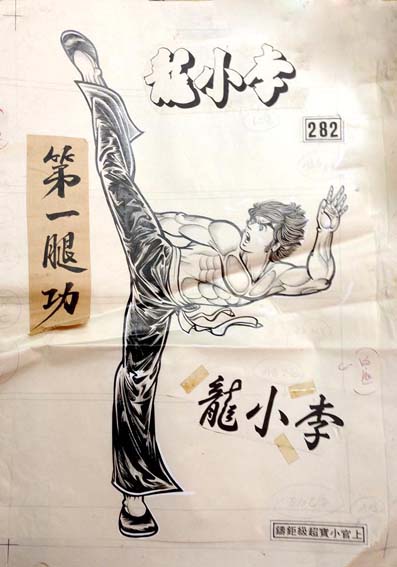 李小龍
282
第一腿功
李小龍
上官小寶超級鉅鑄